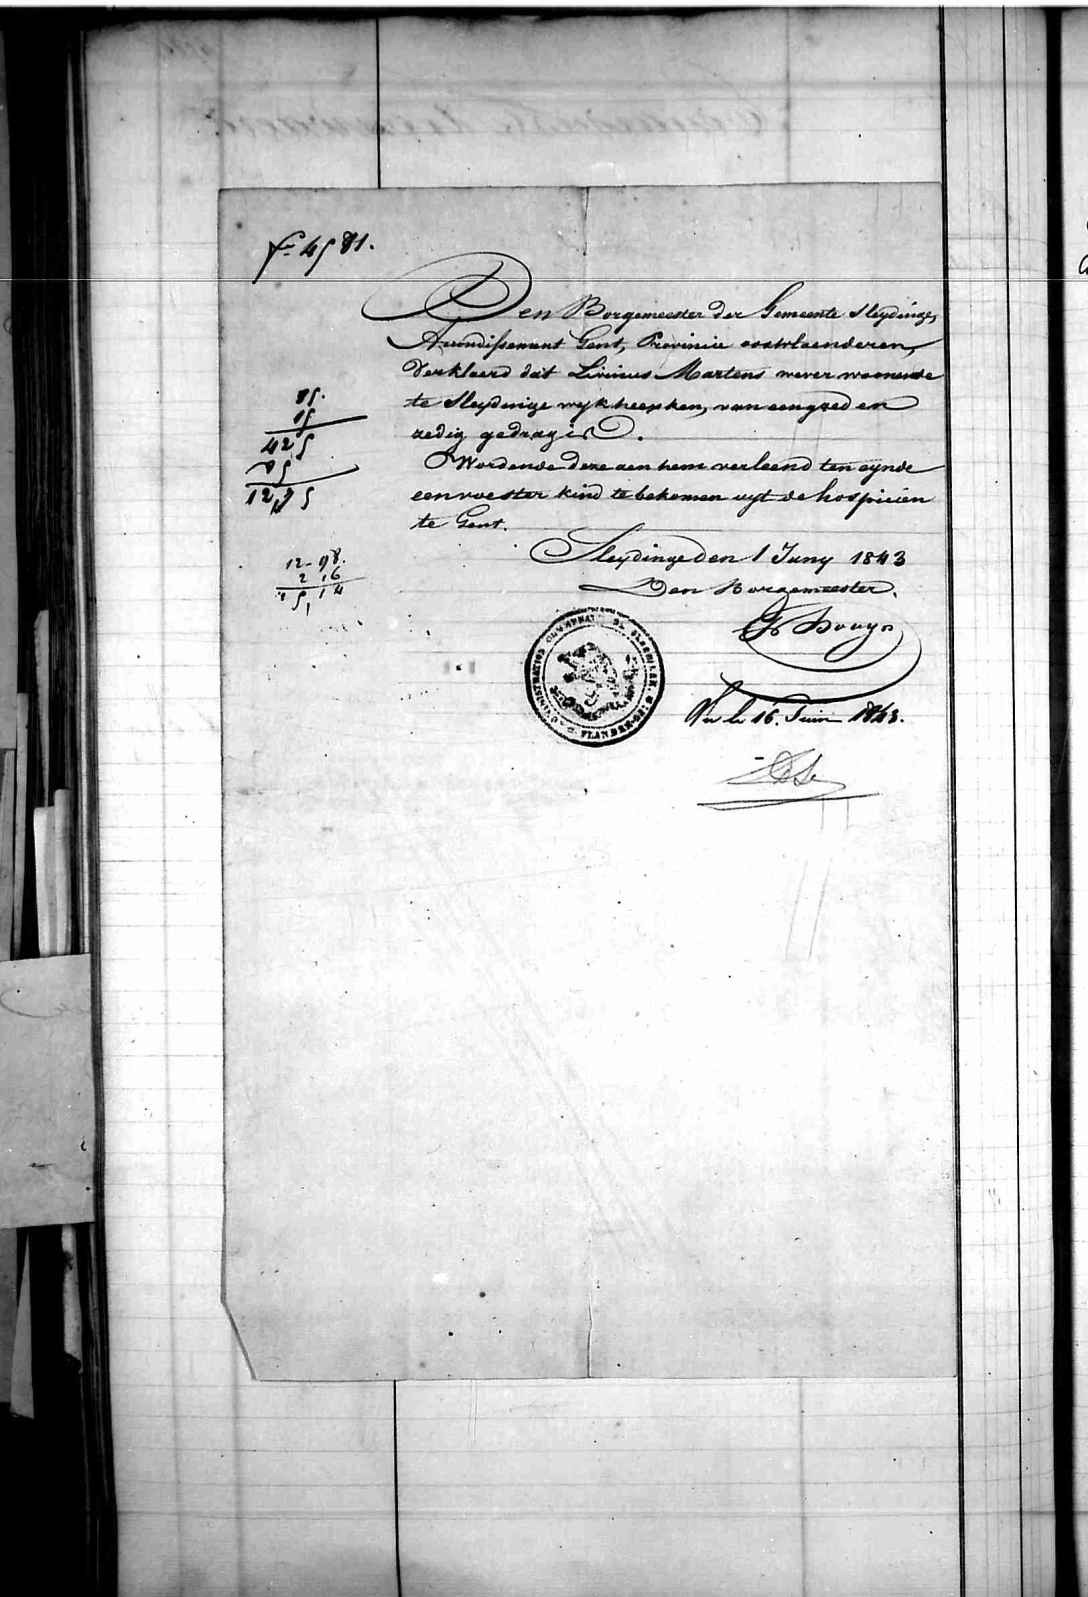 fo. 4581.
Den Borgemeester der Gemeente Sleydinge,
Arrondissement Gent, Provincie oostvlaenderen,
Verklaerd dat Livinus Martens wever woonende
te Sleydinge wyk heysken, van een goed en
zedig gedrag is.
Wordende deze aen hem verleend ten eynde
een voester kind te bekomen uyt de hospicien
te Gent.
Sleydinge den 1 Juny 1843
Den Borgemeester.
85.
15
425
85
1275
12-98.
2 16
15,14
ADMINISTRATION COMMUNALE DE SLEYDINGE
FLANDRE
Vu le 16. Juin 1843.